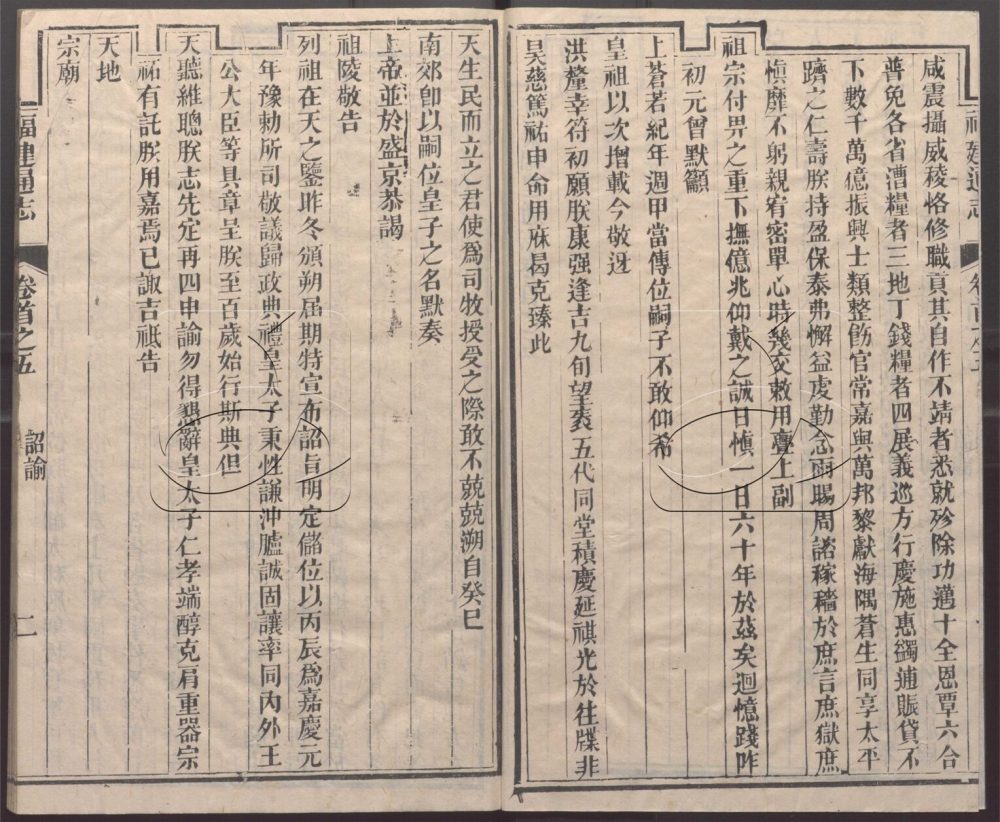 福建通志
卷首之五
咸震攝威稜恪修職貢其自作不靖者悉就殄除功邁十全恩覃六合
普免各省漕糧者三地丁錢糧者四展義巡方行慶施惠蠲逋賑貸不
下數千萬億振興士類整飭官常嘉與萬邦黎獻海隅蒼生同享太平
躋之仁壽朕持盈保泰弗懈益虔勤念雨暘周諮稼穡於庶言庶獄庶
愼靡不躬親宥密單心時幾交敕用亹上副
祖宗付畀之重下撫億兆仰戴之誠日愼一日六十年於茲矣迴憶踐阼
初元曾默籲
上蒼若紀年週甲當傳位嗣子不敢仰希
皇祖以次增載今敬迓
洪釐幸符初願朕康强逢吉九旬望裒五代同堂積慶延祺光於往牒非
昊慈篤祐申命用庥曷克臻此
天生民而立之君使爲司牧授受之際敢不兢兢溯自癸巳
南郊卽以嗣位皇子之名默奏
上帝並於盛京恭謁
祖陵敬告
列祖在天之鑒昨冬頒朔屆期特宣布詔旨明定儲位以丙辰爲嘉慶元
年豫勅所司敬議歸政典禮皇太子秉性謙沖臚誠固讓率同內外王
公大臣等具章呈朕至百歲始行斯典但
天聽維聰朕志先定再四申諭勿得懇辭皇太子仁孝端醇克肩重器宗
祐有託朕用嘉焉已諏吉祗告
天地
宗廟
福建通志
卷首之五
詔諭
二